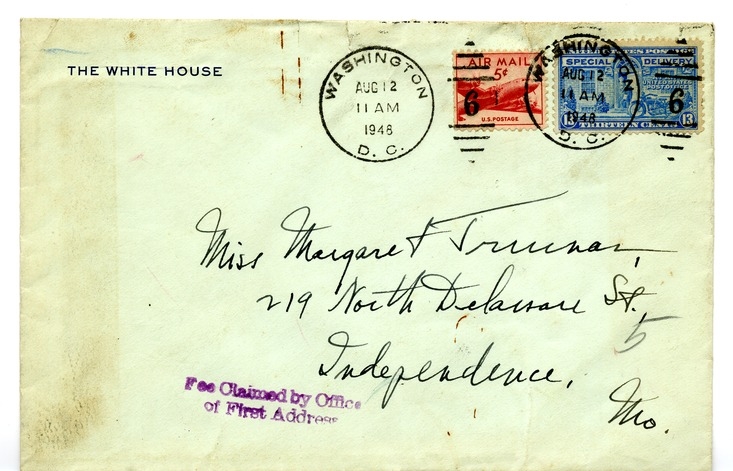 THE WHITE HOUSE
WASHINGTON
AUG 12
11 AM
1948
D. C.
AIR MAIL
5¢
6
U.S. POSTAGE
WASHINGTON
AUG 12
11 AM
1948
D. C.
UNITED STATES POSTAGE
SPECIAL DELIVERY
UNITED STATES
POST OFFICE
6
13 THIRTEEN CENTS 13
Miss Margaret Truman,
219 North Delaware St.,
5
Independence,
Mo.
Fee Claimed by Office
of First Address